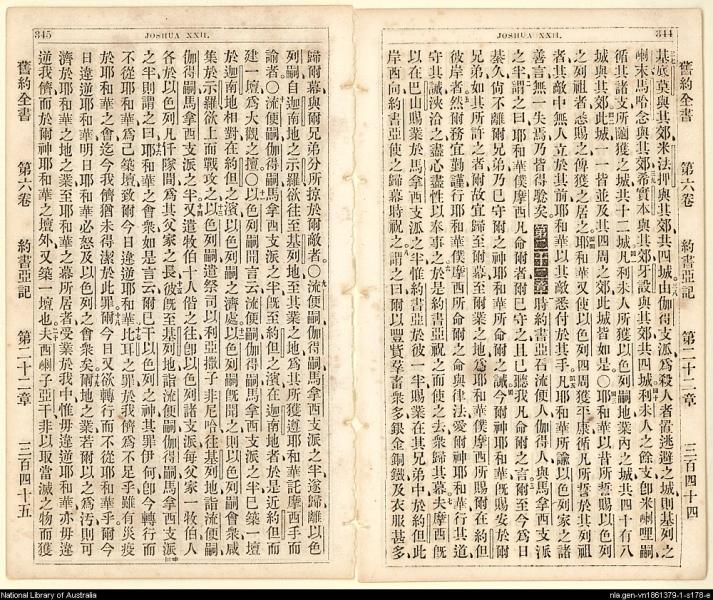 344
JOSHUA XXII.
舊約全書 第六卷 約書亞記 第二十二章 三百四十四
基底莫與其郊米法押與其郊共四城由伽得支派爲殺人者置逃避之城則基列之
喇末馬哈念與其郊希實本與其郊牙設與其郊共四城利未人之餘支卽米喇哩嗣
循其諸支所鬮獲之城共十二城凡利未人所獲以色列嗣地業內之城共四十有八
城與其郊此城一一皆並及其四周之郊此城皆如是〇耶和華以昔所誓賜以色列
之列祖者悉賜之傳獲之居之耶和華又使以色列四周獲平康循凡所誓於其列祖
者其敵中無人立於其前耶和華以其敵悉付於其手凡耶和華所諭以色列家之諸
善言無一失焉乃皆得驗矣第二十二章時約書亞召流便人伽得人與馬拿西支派
之半謂之曰耶和華僕摩西凡命爾者爾已守之且已聽我凡命爾之言爾至今爲日
綦久尙不離爾兄弟乃已守爾之神耶和華所命之誡今爾神耶和華旣賜安於爾
兄弟如其所許之者爾故宜歸至爾幕至爾業之地爲耶和華僕摩西所賜爾在約但
彼岸者然爾務宜勤謹行耶和華僕摩西所命爾之命與律法愛爾神耶和華行其道
守其誡浹洽之盡心盡性以奉事之於是約書亞祝之而使之去衆歸其幕夫摩西旣
以在巴山賜業於馬拿西支派之半惟約書亞於彼一半賜業在其兄弟中於約但此
岸西向約書亞使之歸幕時祝之謂之曰爾以豐貲羣畜衆多銀金銅鐵及衣服甚多
JOSHUA XXII.
345
歸爾幕與爾兄弟分所掠於爾敵者〇流便嗣伽得嗣馬拿西支派之半遂歸離以色
列嗣自迦南地之示羅欲往至基列地至其業之地爲其所獲遵耶和華託摩西手而
諭者〇流便嗣伽得嗣馬拿西支派之半旣至約但之濱在迦南地者於是近約但而
建一壇爲大觀之壇〇以色列嗣聞言云流便嗣伽得嗣馬拿西支派之半已築一壇
於迦南地相對在約但之濱以色列嗣之濟處以色列嗣旣聞之則以色列嗣會衆咸
集於示羅欲上而戰攻之以色列嗣遣祭司以利亞撒子非尼哈往基列地詣流便嗣
伽得嗣馬拿西支派之半又遣牧伯十人偕之往卽以色列諸支派每父家一牧伯人
各於以色列凡仟隊間爲其父家之長彼旣至基列地詣流便嗣伽得嗣馬拿西支派
之半則謂之曰耶和華之會衆如是言云爾已干以色列之神其罪伊何卽今轉行而
不從耶和華爲己築壇致爾今日違逆耶和華比耳之罪於我儕爲不足乎雖有災疫
於耶和華之會迄今我儕猶未得潔於此罪爾今日又欲轉行而不從耶和華乎爾今
日違逆耶和華明日耶和華必怒及以色列之會衆矣爾地之業若爾以之爲汚則可
濟於耶和華之地之業至耶和華之幕所居者受業於我中惟毋違逆耶和華亦毋違
逆我儕而於爾神耶和華之壇外又築一壇也夫西喇子亞干非以取當滅之物而獲
舊約全書 第六卷 約書亞記 第二十二章 三百四十五
National Library of Australia
nla.gen-vn1861379-1-s178-e